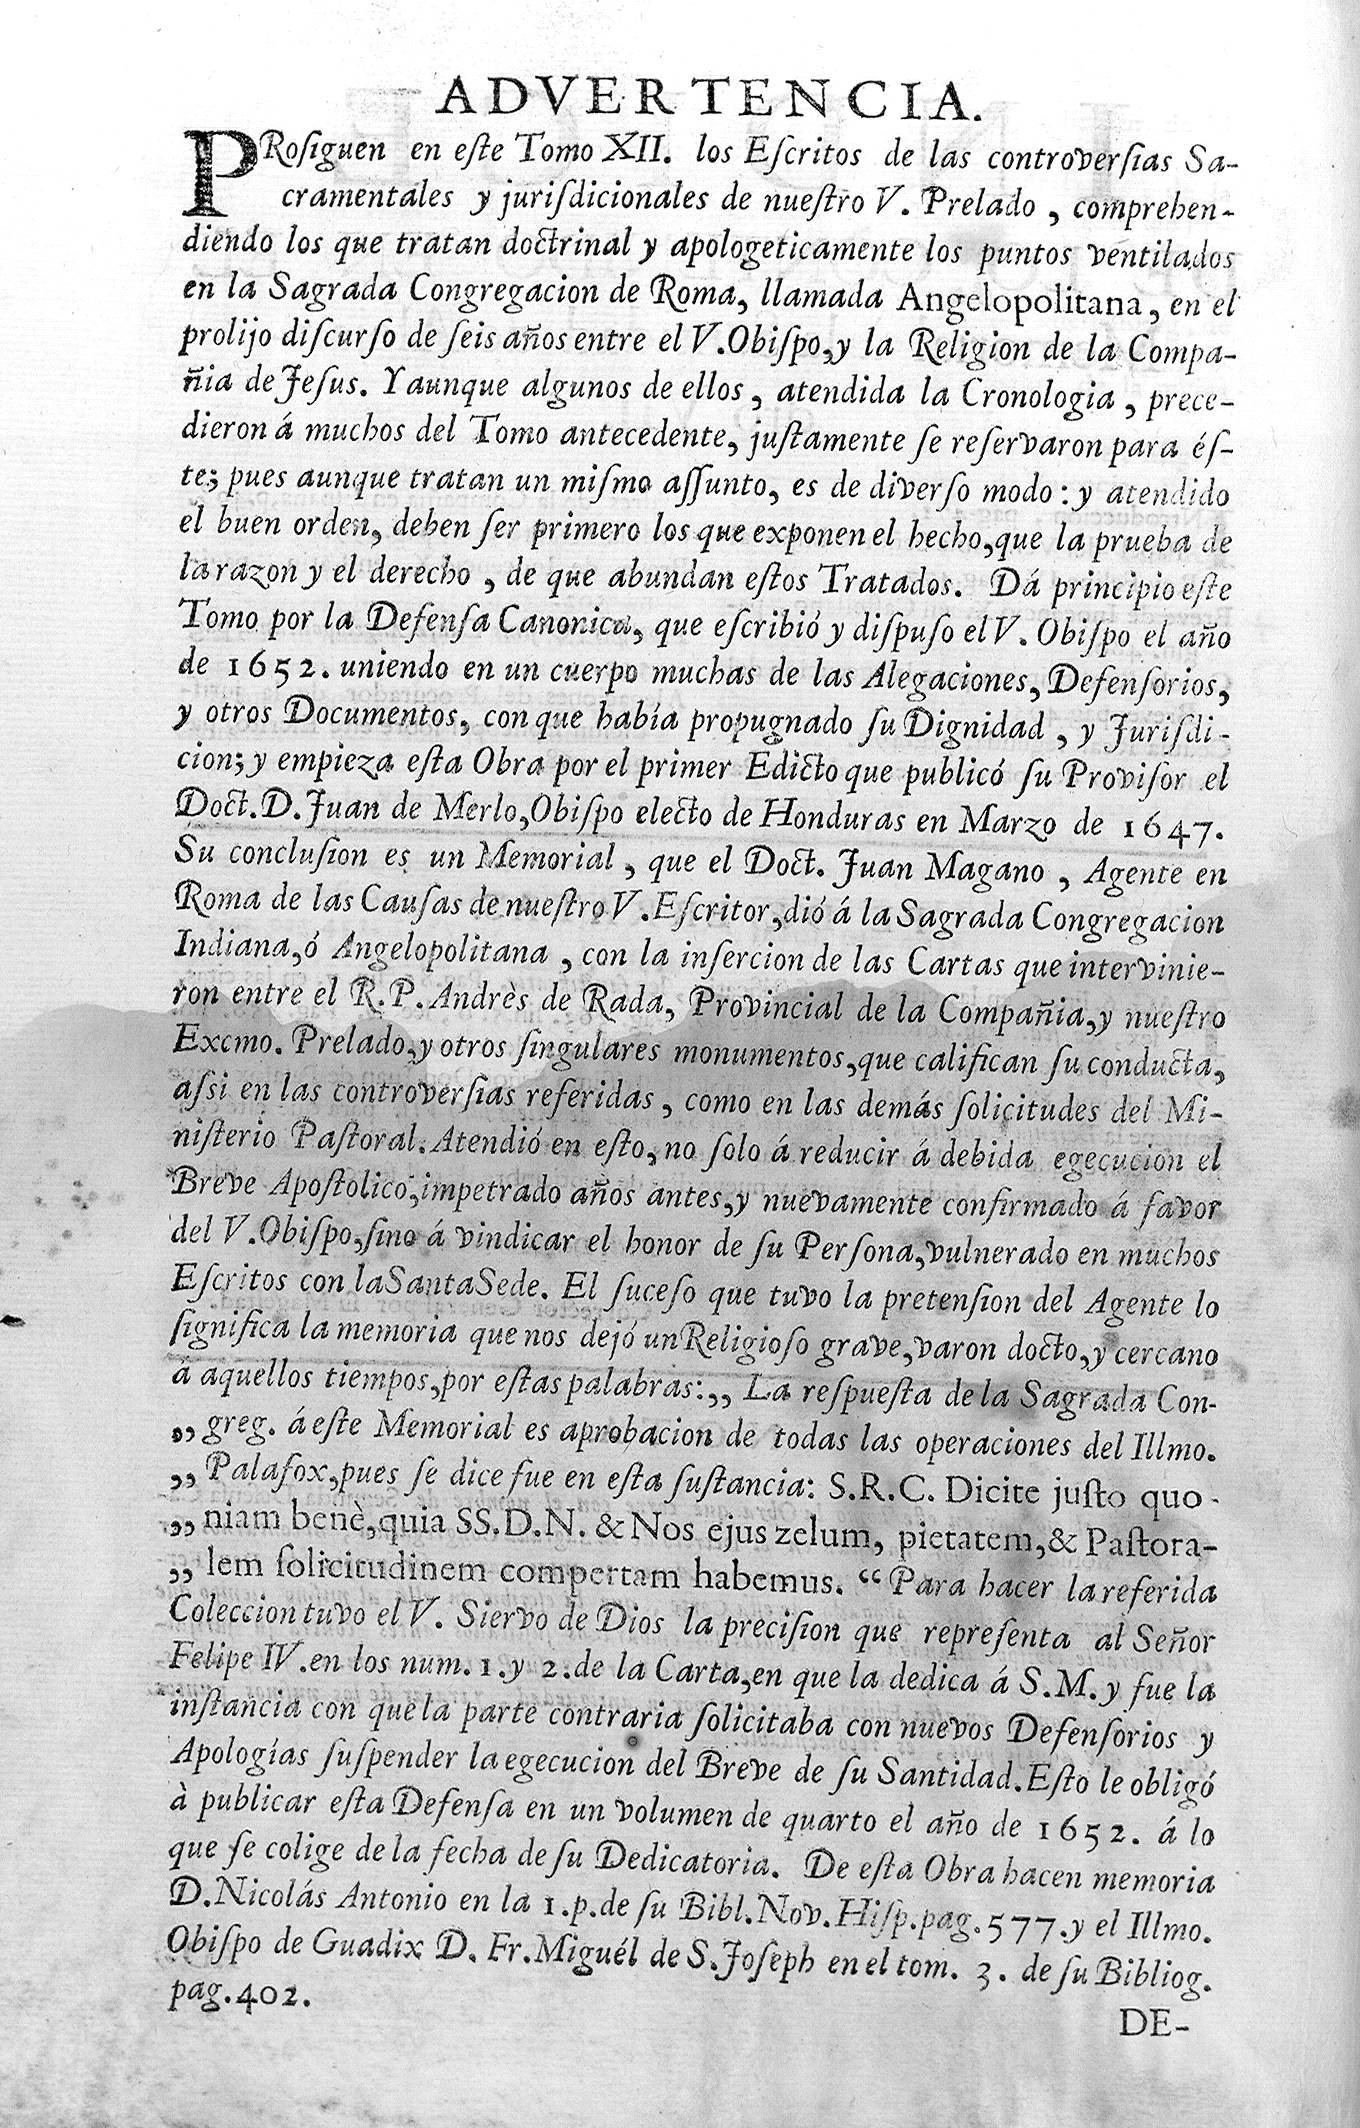 ADVERTENCIA.
PRosiguen en eſte Tomo XII. los Eſcritos de las controverſias Sa-
cramentales y juriſdicionales de nueſtro V. Prelado, comprehen-
diendo los que tratan doctrinal y apologeticamente los puntos ventilados
en la Sagrada Congregacion de Roma, llamada Angelopolitana, en el
prolijo diſcurſo de ſeis años entre el V. Obiſpo, y la Religion de la Compa-
ñia de Jeſus. Y aunque algunos de ellos, atendida la Cronologia, prece-
dieron á muchos del Tomo antecedente, juſtamente ſe reſervaron para éſ-
te; pues aunque tratan un miſmo aſſunto, es de diverſo modo: y atendido
el buen orden, deben ſer primero los que exponen el hecho, que la prueba de
la razon y el derecho, de que abundan eſtos Tratados. Dá principio eſte
Tomo por la Defenſa Canonica, que eſcribió y diſpuſo el V. Obiſpo el año
de 1652. uniendo en un cuerpo muchas de las Alegaciones, Defenſorios,
y otros Documentos, con que había propugnado ſu Dignidad, y Juriſdi-
cion; y empieza eſta Obra por el primer Edicto que publicó ſu Proviſor el
Doct. D. Juan de Merlo, Obiſpo electo de Honduras en Marzo de 1647.
Su concluſion es un Memorial, que el Doct. Juan Magano, Agente en
Roma de las Cauſas de nueſtro V. Eſcritor, dió á la Sagrada Congregacion
Indiana, ó Angelopolitana, con la inſercion de las Cartas que intervinie-
ron entre el R. P. Andrès de Rada, Provincial de la Compañia, y nueſtro
Excmo. Prelado, y otros ſingulares monumentos, que califican ſu conducta,
aſsi en las controverſias referidas, como en las demás ſolicitudes del Mi-
niſterio Paſtoral. Atendió en eſto, no ſolo á reducir á debida egecucion el
Breve Apoſtolico, impetrado años antes, y nuevamente confirmado á favor
del V. Obiſpo, ſino á vindicar el honor de ſu Perſona, vulnerado en muchos
Eſcritos con la Santa Sede. El ſuceſo que tuvo la pretenſion del Agente lo
ſignifica la memoria que nos dejó un Religioſo grave, varon docto, y cercano
á aquellos tiempos, por eſtas palabras: ,, La reſpueſta de la Sagrada Con-
,, greg. á eſte Memorial es aprobacion de todas las operaciones del Illmo.
,, Palafox, pues ſe dice fue en eſta ſuſtancia: S.R.C. Dicite juſto quo-
,, niam benè, quia SS.D.N. & Nos ejus zelum, pietatem, & Paſtora-
,, lem ſolicitudinem compertam habemus. “ Para hacer la referida
Coleccion tuvo el V. Siervo de Dios la preciſion que repreſenta al Señor
Felipe IV. en los num. 1. y 2. de la Carta, en que la dedica á S.M. y fue la
inſtancia con que la parte contraria ſolicitaba con nuevos Defenſorios y
Apologías ſuſpender la egecucion del Breve de ſu Santidad. Eſto le obligó
à publicar eſta Defenſa en un volumen de quarto el año de 1652. á lo
que ſe colige de la fecha de ſu Dedicatoria. De eſta Obra hacen memoria
D. Nicolás Antonio en la 1. p. de ſu Bibl. Nov. Hiſp. pag. 577. y el Illmo.
Obiſpo de Guadix D. Fr. Miguél de S. Joſeph en el tom. 3. de ſu Bibliog.
pag. 402.
DE-